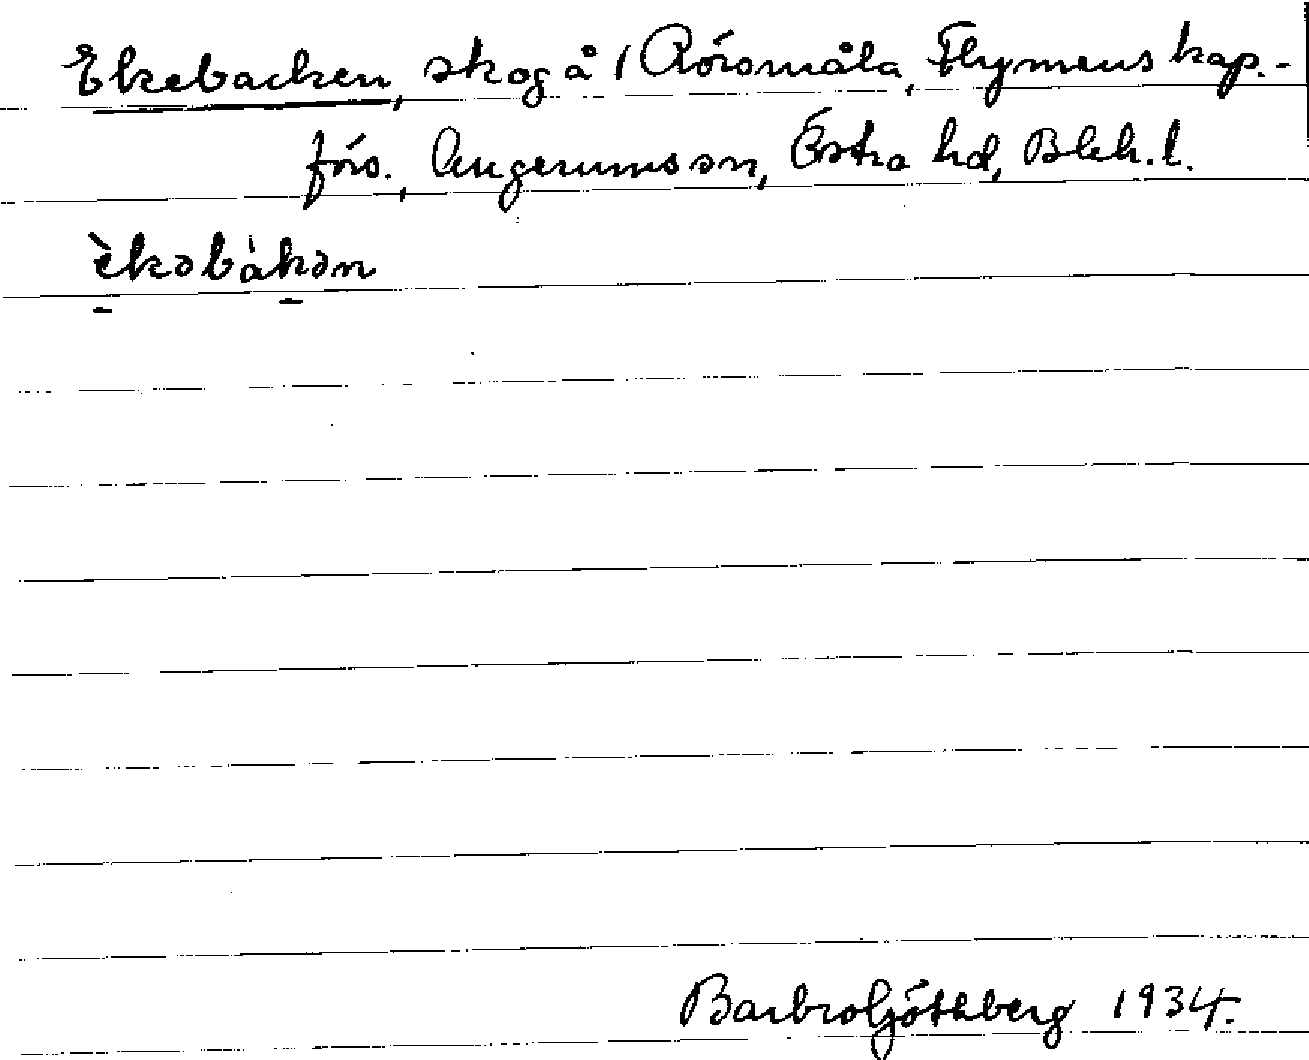 Ekebacken, skog å 1 Rörsmåla, Flymens kap.-
förs., Augerums sn, Östra hd, Blek. l.
èkəbàkən
Barbro Göthberg 1934.